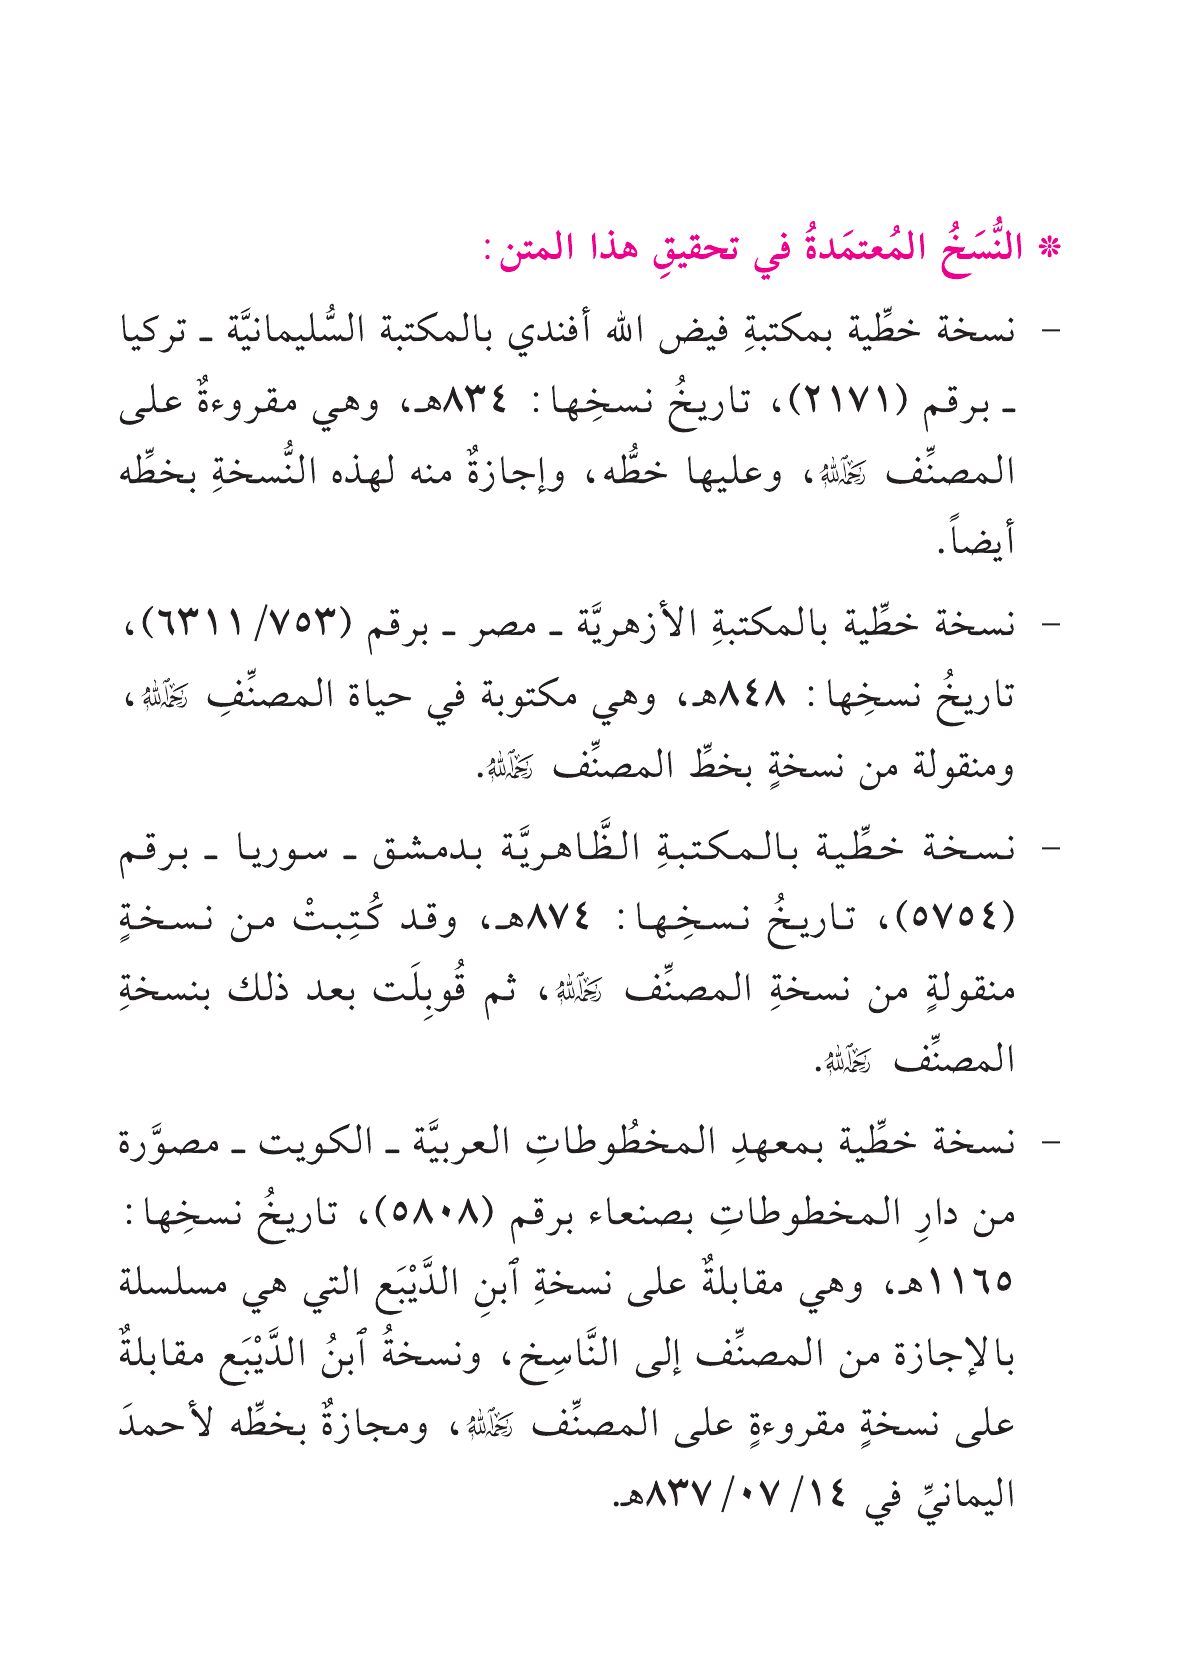 ❊ النُّسَخُ المُعتمَدةُ في تحقيقِ هذا المتن:
– نسخة خطِّية بمكتبةِ فيض الله أفندي بالمكتبة السُّليمانيَّة ـ تركيا
ـ برقم (٢١٧١)، تاريخُ نسخِها: ٨٣٤هـ، وهي مقروءةٌ على
المصنِّف رَحِمَهُ ٱللَّهُ، وعليها خطُّه، وإجازةٌ منه لهذه النُّسخةِ بخطِّه
أيضاً.
– نسخة خطِّية بالمكتبةِ الأزهريَّة ـ مصر ـ برقم (٧٥٣/ ٦٣١١)،
تاريخُ نسخِها: ٨٤٨هـ، وهي مكتوبة في حياة المصنِّفِ رَحِمَهُ ٱللَّهُ،
ومنقولة من نسخةٍ بخطِّ المصنِّف رَحِمَهُ ٱللَّهُ.
– نسخة خطِّية بالمكتبةِ الظَّاهريَّة بدمشق ـ سوريا ـ برقم
(٥٧٥٤)، تاريخُ نسخِها: ٨٧٤هـ، وقد كُتِبتْ من نسخةٍ
منقولةٍ من نسخةِ المصنِّف رَحِمَهُ ٱللَّهُ، ثم قُوبِلَت بعد ذلك بنسخةِ
المصنِّف رَحِمَهُ ٱللَّهُ.
– نسخة خطِّية بمعهدِ المخطُوطاتِ العربيَّة ـ الكويت ـ مصوَّرة
من دارِ المخطوطاتِ بصنعاء برقم (٥٨٠٨)، تاريخُ نسخِها:
١١٦٥هـ، وهي مقابلةٌ على نسخةِ ٱبنِ الدَّيْبَع التي هي مسلسلة
بالإجازة من المصنِّف إلى النَّاسِخ، ونسخةُ ٱبنُ الدَّيْبَع مقابلةٌ
على نسخةٍ مقروءةٍ على المصنِّف رَحِمَهُ ٱللَّهُ، ومجازةٌ بخطِّه لأحمدَ
اليمانيِّ في ١٤/ ٠٧/ ٨٣٧هـ.